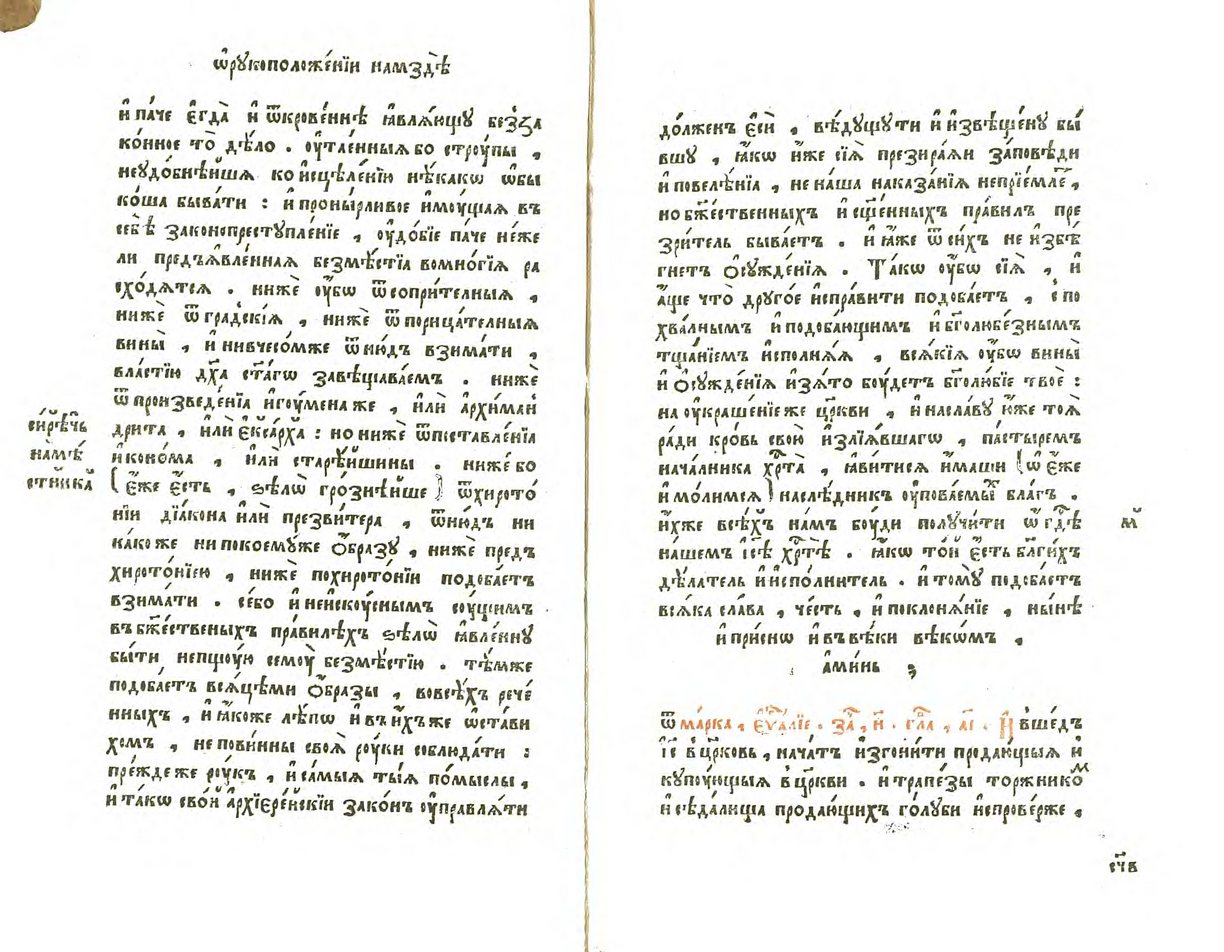 ѡ҆рꙋкоположе́нїи намздѣ̀
и҆ па́че є҆гда̀ и҆ ѿкрове́ннѣ ꙗ҆влѧ́ющꙋ беззⷶа
ко́нное то̀ дѣ́ло . ᲂу҆таенныѧбо стрꙋ́пы ,
неꙋдо́бнѣйшѧ ко и҆сцѣле́нїю нѣ́какѡ ѡ҆бы
ко́ша быва́ти : и҆ проны́рливое и҆мꙋ́щаѧ въ
себѣ̀ законопрестꙋпле́нїе , ᲂу҆до́бїе па́че не́же
ли предъꙗвле́ннаѧ безмѣ́стїа вомно́гїѧ ра
схо́дѧтсѧ . нижѐ ᲂу҆́бѡ ѿсопри́телныѧ ,
нижѐ ѿ гра́дскїѧ , нижѐ ѿ порица́телныѧ
вины̀ , и҆ нивчесо́мже ѿню́дъ взима́ти ,
вла́стїю дх҃а ст҃а́гѡ завѣщава́емъ . нижѐ
ѿ произведе́нїа и҆гꙋ́мена же , и҆лѝ а҆рхима́н
дрита , и҆лѝ є҆кса́рха : но нижѐ ѿпоставле́нїа
и҆коно́ма , и҆лѝ старѣ́йшины . ниже бо
(є҆́же є҆́сть , ѕѣлѡ̀ гро́знѣйше) ѿхирото́
нїи дїа́кона и҆лѝ презви́тера , ѿню́дъ ни
ка́ко же ни покоемꙋ́же ѻ҆́бразꙋ , нижѐ предъ
хирото́нїею , нижѐ похирото́нїи подоба́етъ
взима́ти . се́бо и҆ неискꙋ́снымъ сꙋ́щимъ
въ бж҃е́ственыхъ пра́вилѣхъ ѕѣлѡ̀ ꙗ҆вле́ннꙋ
бы́ти непщꙋ́ю семꙋ̀ безмѣ́стїю . тѣ́мже
подоба́етъ всѧ́цѣми ѻ҆́бразы , вовсѣ́хъ рече́
нныхъ , и҆ ꙗ҆́коже лѣ́пѡ и҆ въ и҆́хъже ѡ҆ста́ви
хомъ , непови́нны своѧ̀ рꙋ́ки соблюда́ти :
пре́жде же рꙋ́къ , и҆ са́мыѧ ты́ѧ по́мыслы ,
и҆ та́кѡ сво́й а҆рхїере́йскїи зако́нъ ᲂу҆правлѧ́ти
си́рѣчь
намѣ́
стника̀
до́лженъ є҆сѝ , вѣ́дꙋщꙋ ти и҆ и҆звѣще́нꙋ бы́
вшꙋ , ꙗ҆́кѡ и҆́же сїѧ̀ презира́ѧи за́повѣди
и҆ повелѣ́нїа , не на́ша наказа́нїѧ непрїе́млеⷮ ,
но бж҃е́ственныхъ и҆ сщ҃е́нныхъ пра́вилъ пре
зри́тель быва́етъ . и҆ ꙗ҆́же ѿ си́хъ не и҆збѣ́
гнетъ ѻ҆сꙋжде́нїѧ . Та́кѡ ᲂу҆́бѡ сїѧ̀ , и҆
а҆́ще что̀ дрꙋго́е и҆спра́вити подоба́етъ , с по
хва́лнымъ и҆ подоба́ющимъ и҆ бг҃олюбе́знымъ
тща́нїемъ и҆сполнѧ́ѧ , всѧ́кїѧ ᲂу҆́бѡ вины̀
и҆ ѻ҆сꙋжде́нїѧ и҆зѧ́то бꙋ́детъ бг҃олю́бїе твоѐ :
на ᲂу҆краше́нїе же цр҃кви , и҆ насла́вꙋ и҆́же тоѧ̀
ра́ди кро́вь свою̀ и҆злїѧ́вшагѡ , па́стыремъ
нача́лника хрⷭ҇та̀ , ꙗ҆ви́тисѧ и҆́маши (ѡ҆ є҆́же
и҆ мо́лимсѧ) наслѣ́дникъ ᲂу҆пова́емыⷯ бла́гъ .
и҆́хже всѣ́хъ на́мъ бꙋ́ди полꙋчи́ти ѡ҆ гдⷭ҇ѣ
на́шемъ і҆с҃ѣ хрⷭ҇тѣ̀ . ꙗ҆́кѡ то́й є҆́сть бл҃ги́хъ
дѣ́латель и҆ и҆сполни́тель . и҆ томꙋ̀ подоба́етъ
всѧ́ка сла́ва , че́сть , и҆ поклонѧ́нїе , ны́нѣ
и҆ при́снѡ и҆ въ вѣ́ки вѣкѡ́мъ .
а҆ми́нь ;
ѿ ма́рка , є҆ѵⷢ҇а́лїе . за҃ , и҃ . гла҃ , а҃і . И҆ вше́дъ
і҆с҃ в цр҃ковь , нача́тъ и҆згони́ти продаю́щыѧ и҆
кꙋпꙋ́ющыѧ в цр҃кви . и҆ трапе́зы торжникоⷨ
и҆ сѣда́лища продаю́щихъ го́лꙋби и҆спрове́рже ,
м҃
сч҃в